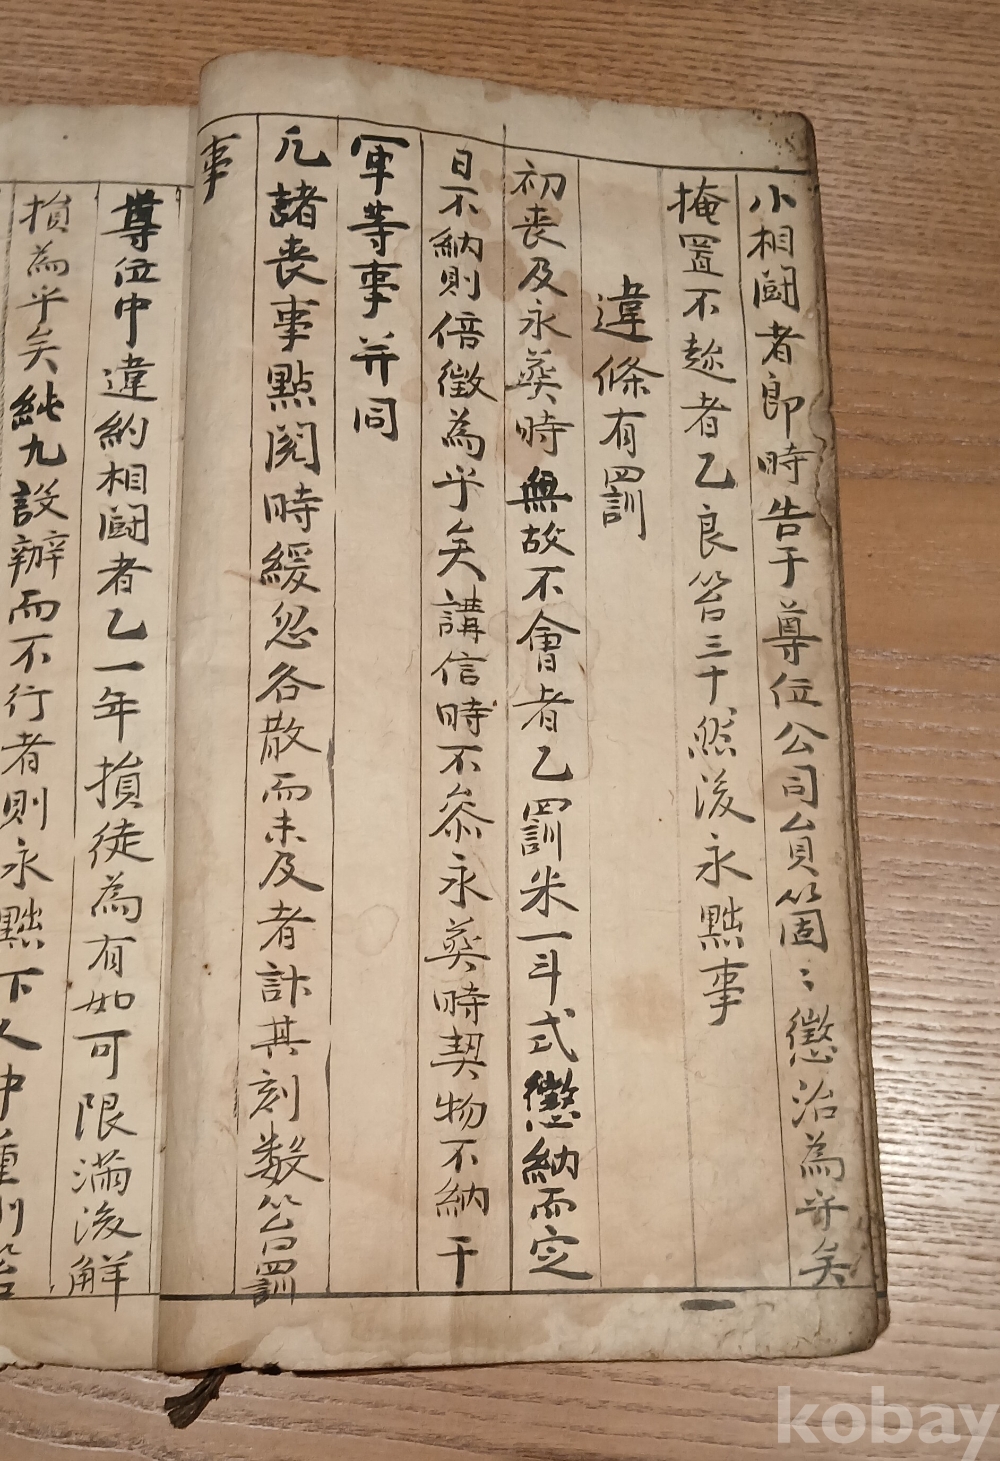 小相鬪者郎時告于尊位公司員箇〻懲治為乎矣
掩置不趂者乙良笞三十然後永黜事
違條有罰
初喪及永葬時無故不會者乙罰米一斗式懲納而定
日不納則倍徵為乎矣講信時不參永葬時契物不納干
軍等事并同
凡諸喪事點閱時緩忽各散而未及者計其刻數笞罰
事
尊位中違約相鬪者乙一年損徒為有如可限滿後解
損為乎矣純九設辦而不行者則永黜下人中重則笞
kobay